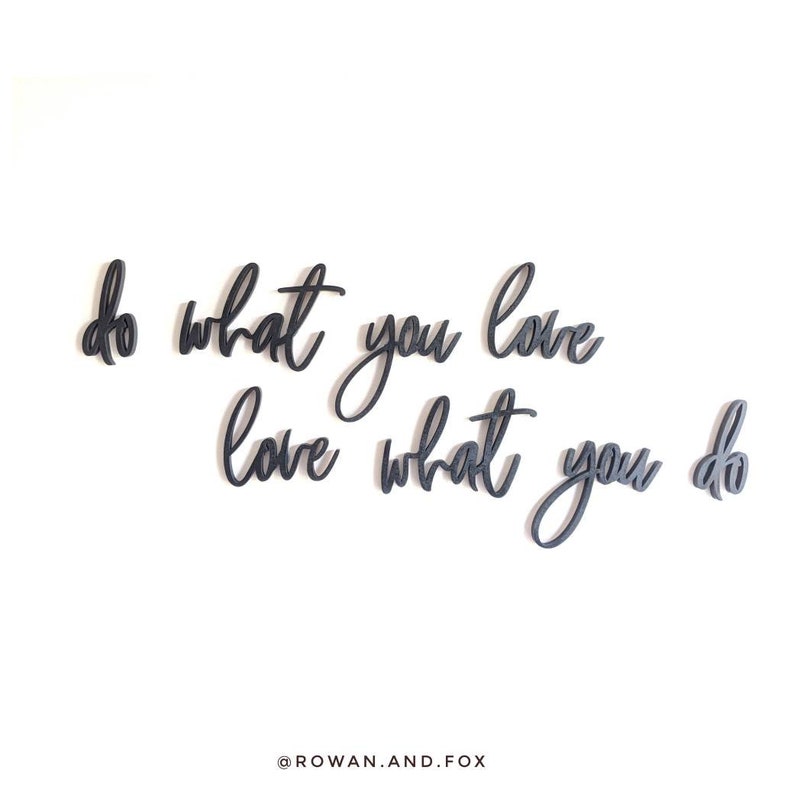 do what you love
love what you do
@ROWAN.AND.FOX